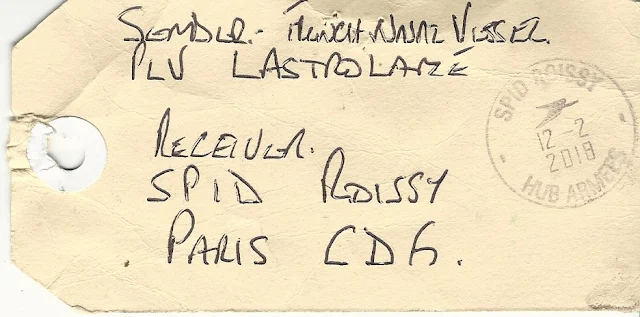 SENDER.- FRENCH NAVAL VESSEL.
PLV LASTROLABÉ
RECEIVER.
SPID ROISSY
PARIS CDG.
SPID ROISSY
12-2
2018
HUB ARMEES